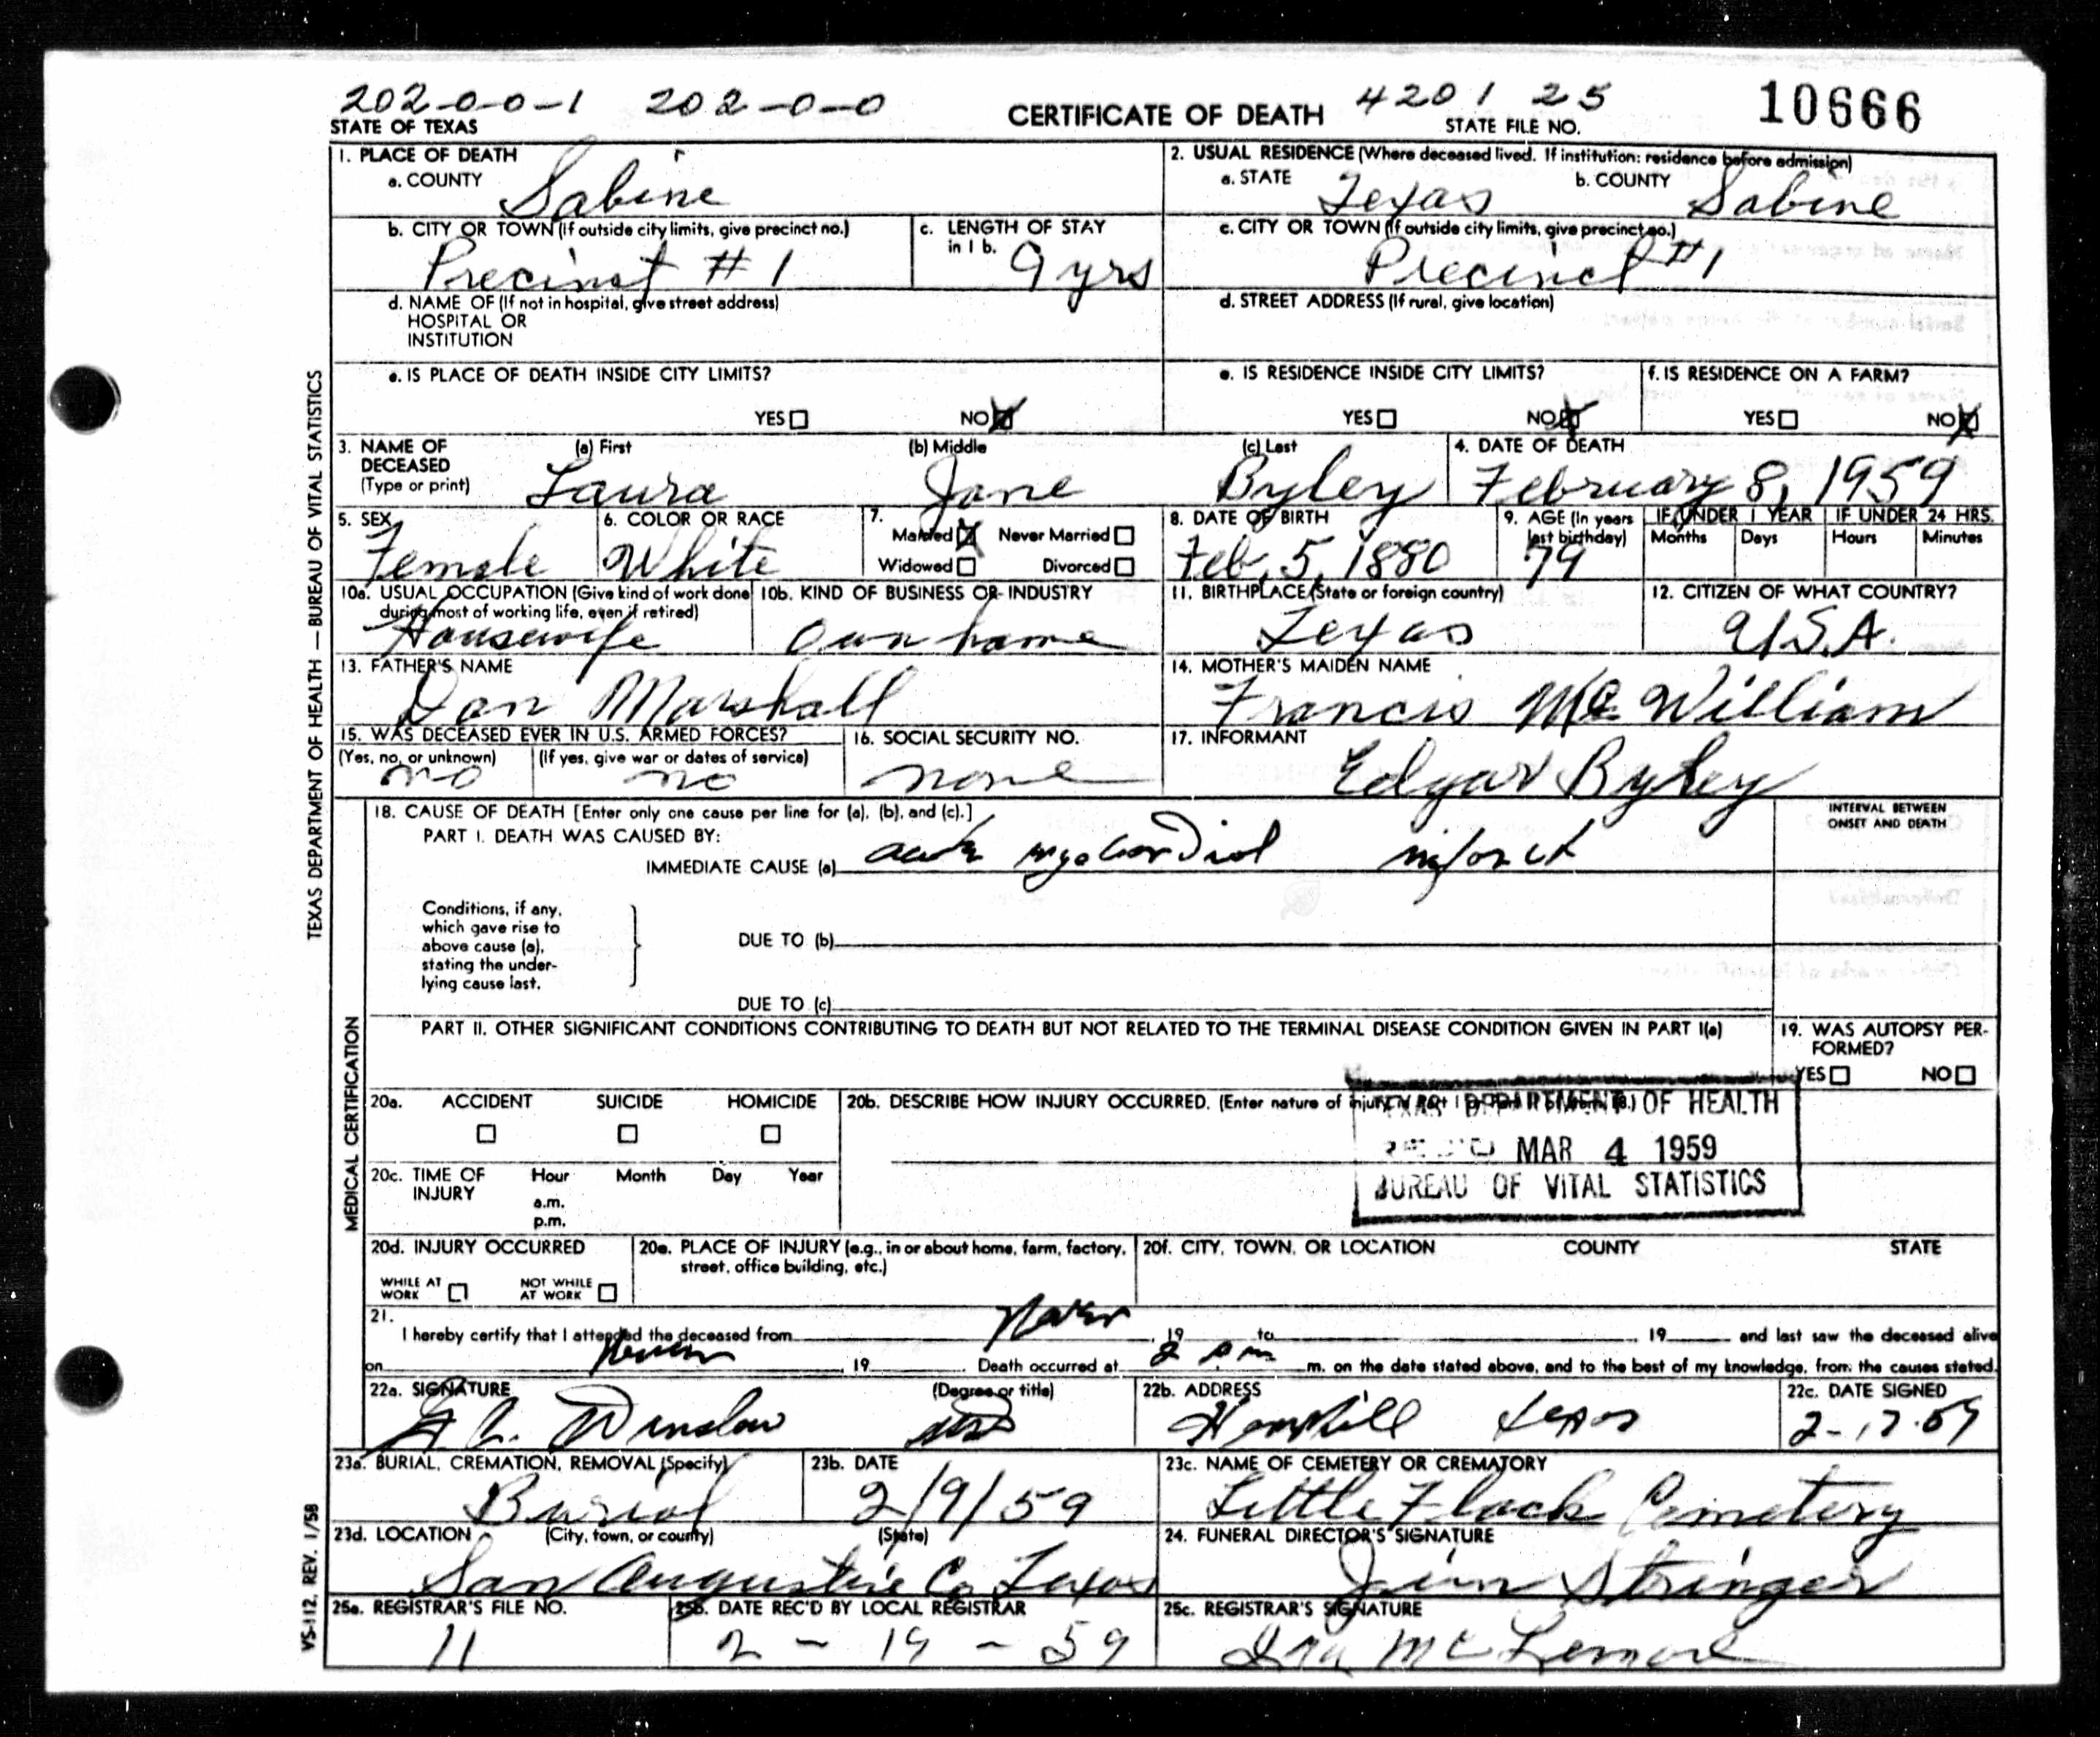 202-0-0-1 202-0-0 CERTIFICATE OF DEATH 4201 25 10666
STATE OF TEXAS STATE FILE NO.
1. PLACE OF DEATH
a. COUNTY Sabine
2. USUAL RESIDENCE (Where deceased lived. If institution: residence before admission)
a. STATE Texas b. COUNTY Sabine
b. CITY OR TOWN (If outside city limits, give precinct no.) Precinct #1
c. LENGTH OF STAY in 1 b. 9 yrs
c. CITY OR TOWN (If outside city limits, give precinct no.) Precinct #1
d. NAME OF (If not in hospital, give street address)
HOSPITAL OR
INSTITUTION
d. STREET ADDRESS (If rural, give location)
e. IS PLACE OF DEATH INSIDE CITY LIMITS?
YES NO X
e. IS RESIDENCE INSIDE CITY LIMITS?
YES NO X
f. IS RESIDENCE ON A FARM?
YES NO X
3. NAME OF DECEASED (Type or print)
(a) First Laura (b) Middle Jane (c) Last Byley
4. DATE OF DEATH February 8, 1959
5. SEX Female
6. COLOR OR RACE White
7. Married X Never Married
Widowed Divorced
8. DATE OF BIRTH Feb. 5, 1880
9. AGE (In years last birthday) 79
IF UNDER 1 YEAR Months Days
IF UNDER 24 HRS. Hours Minutes
10a. USUAL OCCUPATION (Give kind of work done during most of working life, even if retired) Housewife
10b. KIND OF BUSINESS OR INDUSTRY Own home
11. BIRTHPLACE (State or foreign country) Texas
12. CITIZEN OF WHAT COUNTRY? U.S.A.
13. FATHER'S NAME Dan Marshall
14. MOTHER'S MAIDEN NAME Francis Mc William
15. WAS DECEASED EVER IN U.S. ARMED FORCES?
(Yes, no, or unknown) no (If yes, give war or dates of service) no
16. SOCIAL SECURITY NO. none
17. INFORMANT Edgar Byley
18. CAUSE OF DEATH [Enter only one cause per line for (a), (b), and (c).]
INTERVAL BETWEEN ONSET AND DEATH
PART I. DEATH WAS CAUSED BY:
IMMEDIATE CAUSE (a) acute myocardial infarct
Conditions, if any,
which gave rise to
above cause (a),
stating the under-
lying cause last.
DUE TO (b)
DUE TO (c)
PART II. OTHER SIGNIFICANT CONDITIONS CONTRIBUTING TO DEATH BUT NOT RELATED TO THE TERMINAL DISEASE CONDITION GIVEN IN PART I(a)
19. WAS AUTOPSY PERFORMED?
YES NO
20a. ACCIDENT SUICIDE HOMICIDE
20b. DESCRIBE HOW INJURY OCCURRED. (Enter nature of injury in Part I
TEXAS DEPARTMENT OF HEALTH
MAR 4 1959
BUREAU OF VITAL STATISTICS
20c. TIME OF INJURY Hour Month Day Year
a.m.
p.m.
20d. INJURY OCCURRED
WHILE AT WORK NOT WHILE AT WORK
20e. PLACE OF INJURY (e.g., in or about home, farm, factory, street, office building, etc.)
20f. CITY, TOWN, OR LOCATION COUNTY STATE
21.
I hereby certify that I attended the deceased from Never, 19 to , 19 and last saw the deceased alive
on Never, 19 . Death occurred at 2 pm m. on the date stated above, and to the best of my knowledge, from the causes stated.
22a. SIGNATURE (Degree or title) Winslow MD
22b. ADDRESS Hemphill Texas
22c. DATE SIGNED 2-17-59
23a. BURIAL, CREMATION, REMOVAL (Specify) Burial
23b. DATE 2/9/59
23c. NAME OF CEMETERY OR CREMATORY Little Flock Cemetery
23d. LOCATION (City, town, or county) (State) San Augustine Co. Texas
24. FUNERAL DIRECTOR'S SIGNATURE Jim Stringer
25a. REGISTRAR'S FILE NO. 11
25b. DATE REC'D BY LOCAL REGISTRAR 2-19-59
25c. REGISTRAR'S SIGNATURE Ina McLemore
TEXAS DEPARTMENT OF HEALTH — BUREAU OF VITAL STATISTICS
MEDICAL CERTIFICATION
VS-112, REV. 1/58